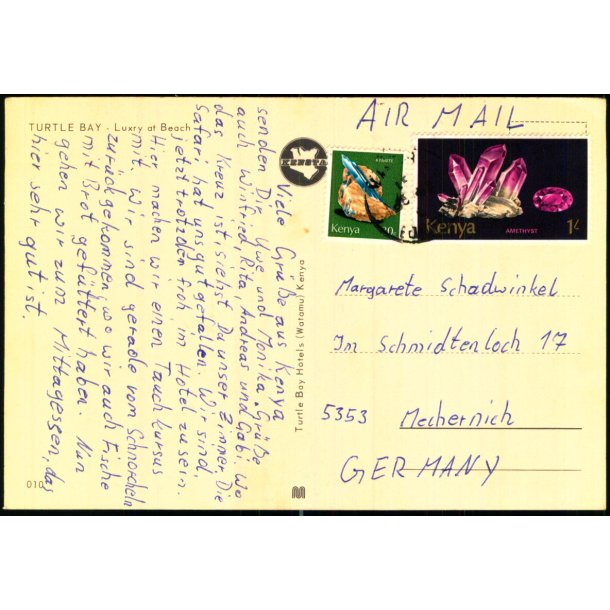 TURTLE BAY - Luxry at Beach
Viele Grüße aus Kenya
senden Dir, Uwe und Monika. Grüße
auch Winfried, Rita, Andreas und Gabi. Wo
das Kreuz ist, siehst Du unser Zimmer. Die
Safari hat uns gut gefallen. Wir sind
jetzt trotzdem froh, im Hotel zu sein.
Hier machen wir einen Tauchkursus
mit. Wir sind gerade vom Schnorcheln
zurückgekommen, wo wir auch Fische
mit Brot gefüttert haben. Nun
gehen wir zum Mittagessen, das
hier sehr gut ist.
010
Turtle Bay Hotels (Watamu) Kenya
KENYA
AIR MAIL
KYANITE
Kenya
AMETHYST
Kenya 1/-
Margarete Schadwinkel
Im Schmidtenloch 17
5353 Mechernich
GERMANY